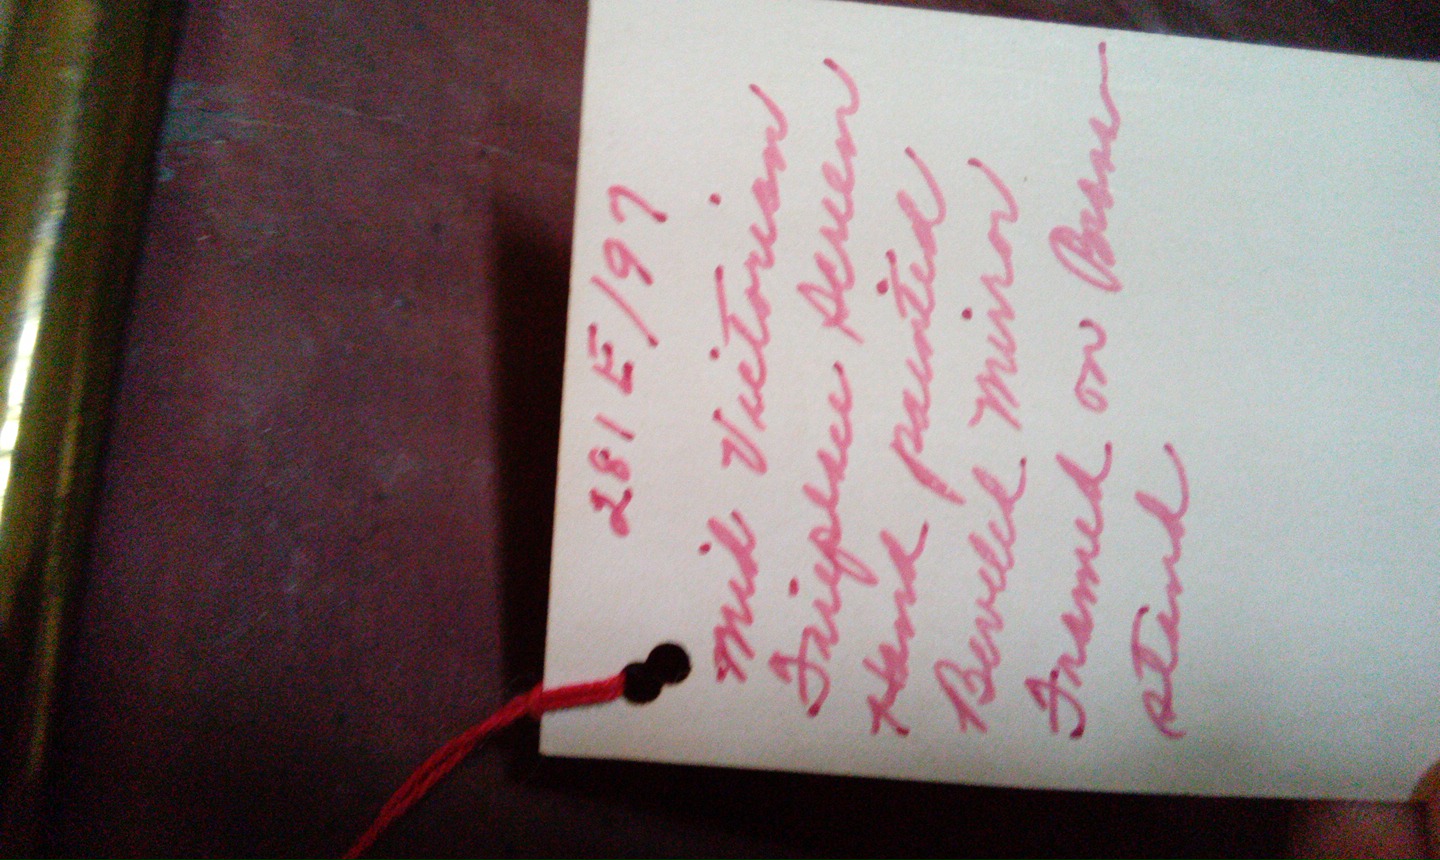 281 E/97
Mid Victorian
Fireplace Screen
Hand painted
Beveled Mirror
Framed on Brass
stand